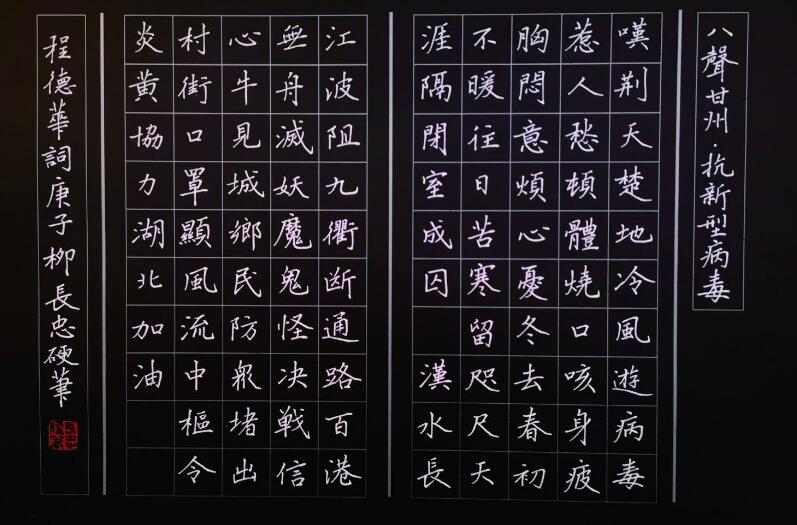 八聲甘州·抗新型病毒
嘆荊天楚地冷風遊病毒
惹人愁頓體燒口咳身疲
胸悶意煩心憂冬去春初
不暖往日苦寒留咫尺天
涯隔閉室成囚 漢水長
江波阻九衢断通路百港
無舟滅妖魔鬼怪决戦信
心牛見城鄉民防衆堵出
村街口罩顯風流中樞令
炎黃協力湖北加油
程德華詞庚子柳長忠硬筆